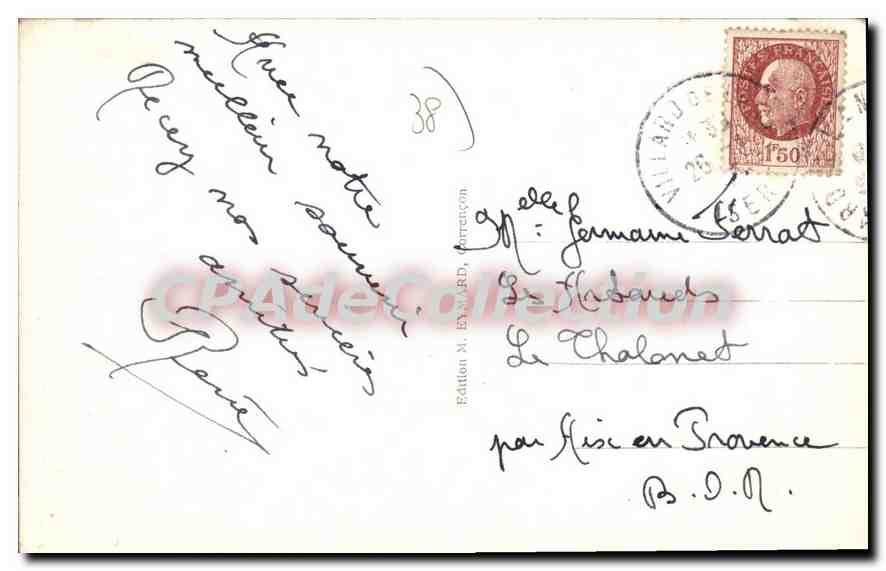 Avec notre
meilleur souvenir
Recevez nos sincères
amitiés
38
Edition M. EYMARD, Corrençon
POSTES FRANÇAISES
1F50
VILLARD DE
26
ISERE
Melle Germaine Serrat
Les Artauds
Le Tholonet
par Aix en Provence
B. D. R.
CPAdeCollection